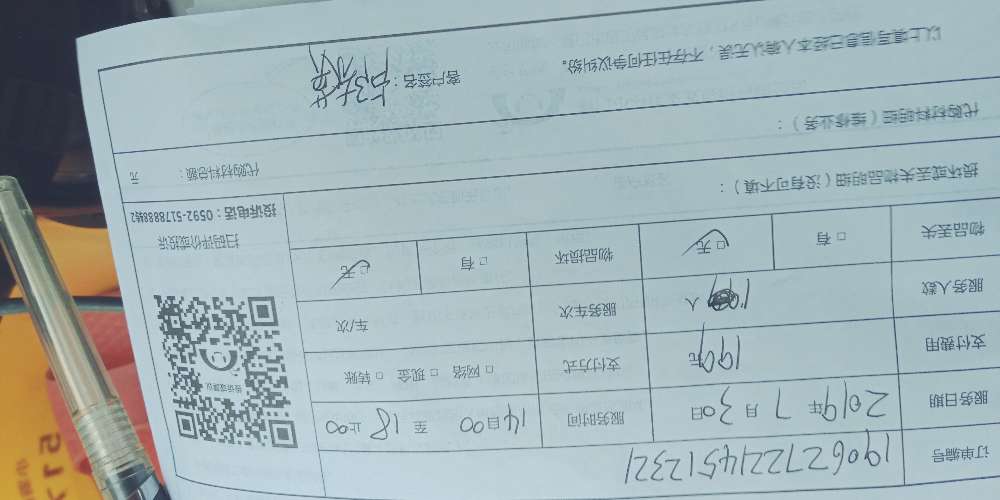 订单编号 1906272214512321
服务日期 2019年7月30日 服务时间 14时00至18时00
支付费用 190元 支付方式 □ 网络 □ 现金 □ 转账
服务人数 人 服务车次 车/次
物品丢失 □ 有 □ 无 物品损坏 □ 有 □ 无
损坏或丢失物品明细(没有可不填):
投诉建议
扫码评价或投诉
投诉电话:0592-5178888转2
代购材料明细(维修业务):
代购材料总额: 元
以上填写信息已经本人确认无误,不存在任何争议纠纷。
客户签名: